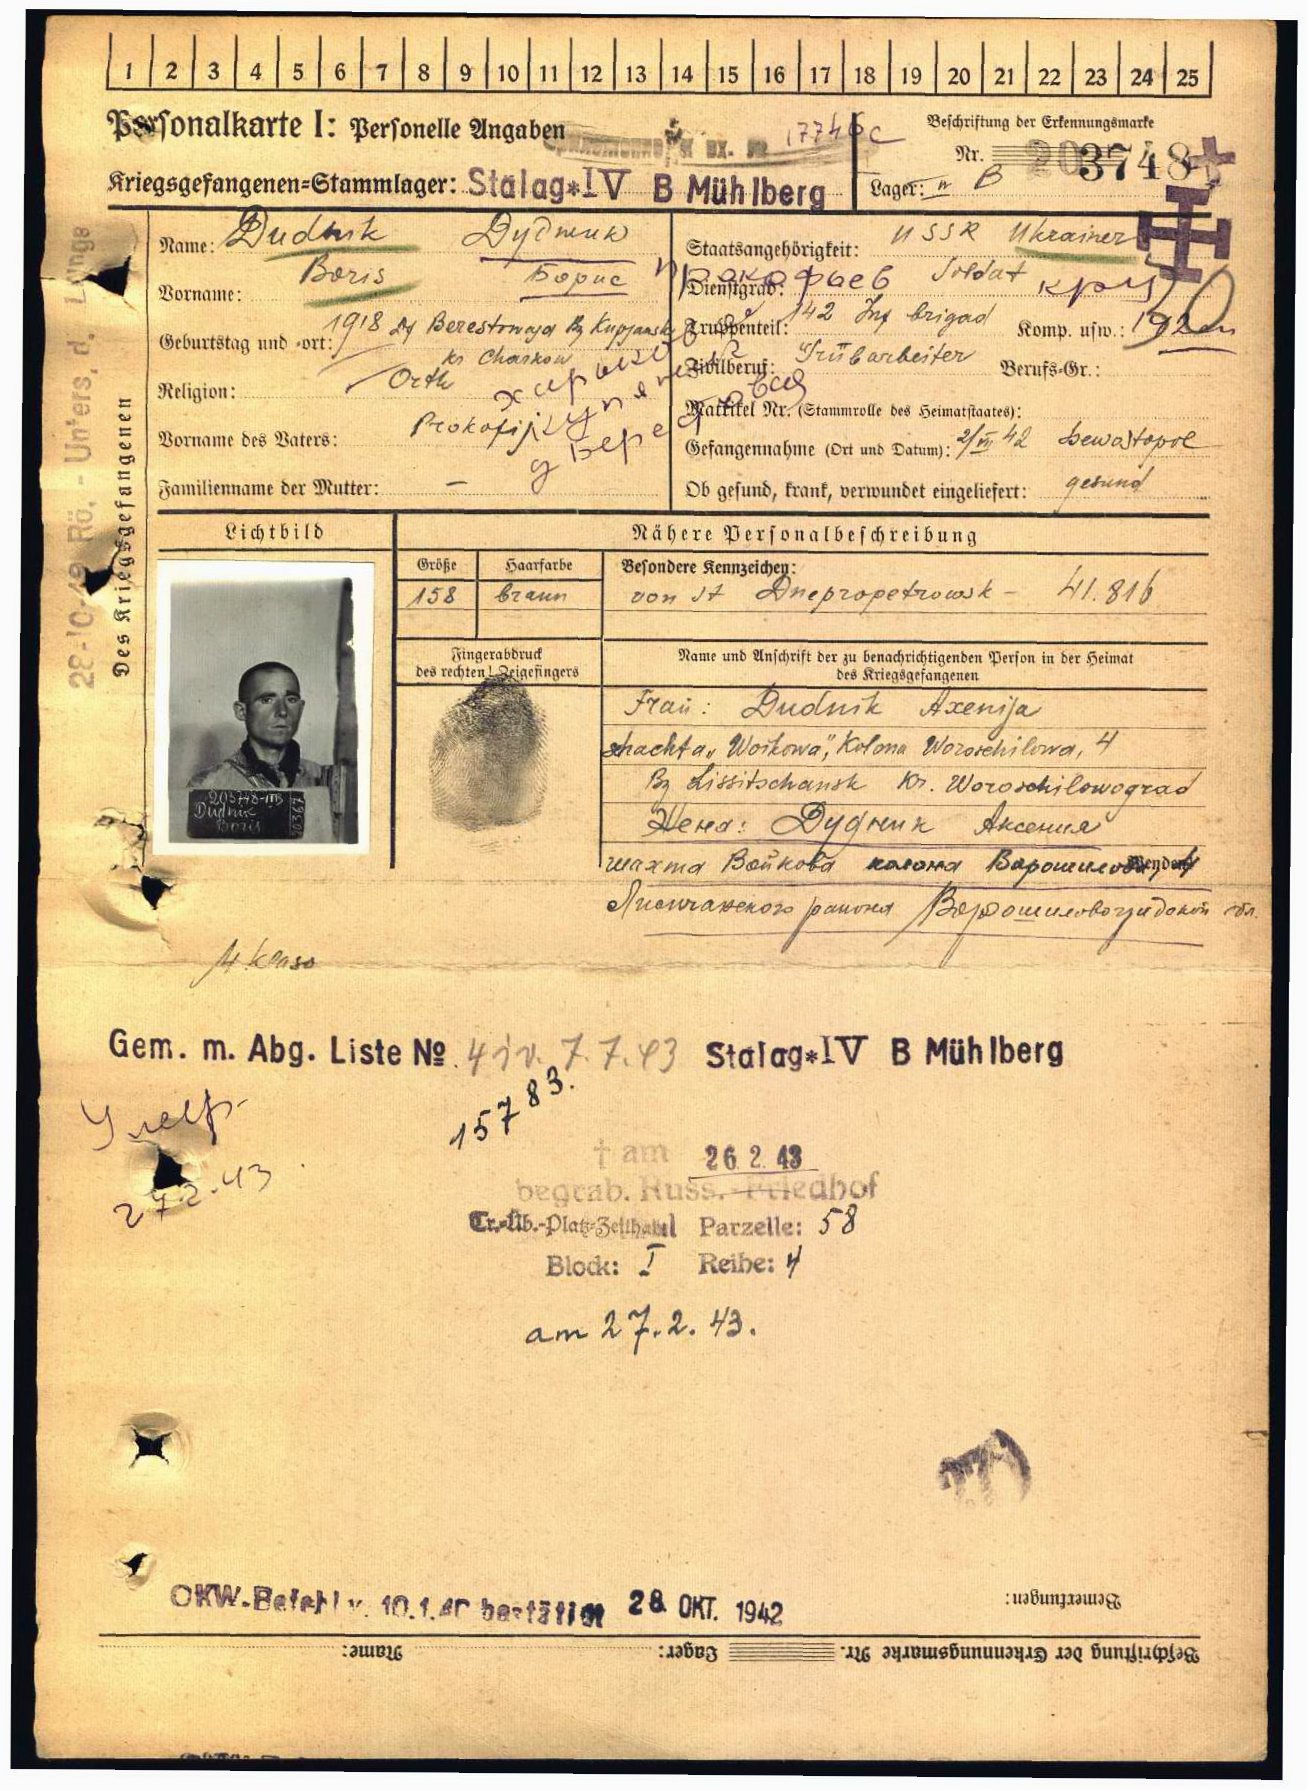 1 2 3 4 5 6 7 8 9 10 11 12 13 14 15 16 17 18 19 20 21 22 23 24 25
Personalkarte I: Personelle Angaben
17746c
Beschriftung der Erkennungsmarke
Nr. 203748
Kriegsgefangenen=Stammlager: Stalag*IV B Mühlberg
Lager: IV B
Des Kriegsgefangenen
Name: Dudnik Дудник
Vorname: Boris Борис
Прокофьев
Geburtstag und -ort: 1918 Df Berestowaja Bz Kupjansk
kr Charkow
Religion: Orth
Vorname des Vaters: Prokofij
Familienname der Mutter: –
Staatsangehörigkeit: USSR Ukrainer
Dienstgrad: Soldat
Truppenteil: 142 Inf brigad Komp. usw.:
Zivilberuf: Grubarbeiter Berufs-Gr.:
Matrikel Nr. (Stammrolle des Heimatstaates):
Gefangennahme (Ort und Datum): 2/VII 42 Sewastopol
Ob gesund, krank, verwundet eingeliefert: gesund
Lichtbild
Nähere Personalbeschreibung
Größe Haarfarbe Besondere Kennzeichen:
158 braun von St Dnepropetrowsk – 41.816
Fingerabdruck
des rechten! Zeigefingers
Name und Anschrift der zu benachrichtigenden Person in der Heimat
des Kriegsgefangenen
Frau: Dudnik Axenija
Schachta „Woikowa", Kolona Woroschilowa, 4
Bz Lissitschansk Kr. Woroschilowograd
Жена: Дудник Аксения
шахта Войкова колона Ворошилова, 4
Лисичанского района Ворошиловоградской обл.
203748-IVB
Dudnik
Boris
4 klass
Gem. m. Abg. Liste № 4 iv. 7.7.43 Stalag*IV B Mühlberg
15783.
Умер
27.2.43
† am 26. 2. 43
begrab. Russ.-Friedhof
Tr.-Üb.-Platz-Zeithain Parzelle: 58
Block: I Reihe: 4
am 27.2.43.
OKW-Befehl v. 10.1.40 bestätigt 28. OKT. 1942
Bemerkungen:
Beschriftung der Erkennungsmarke Nr. Lager: Name: